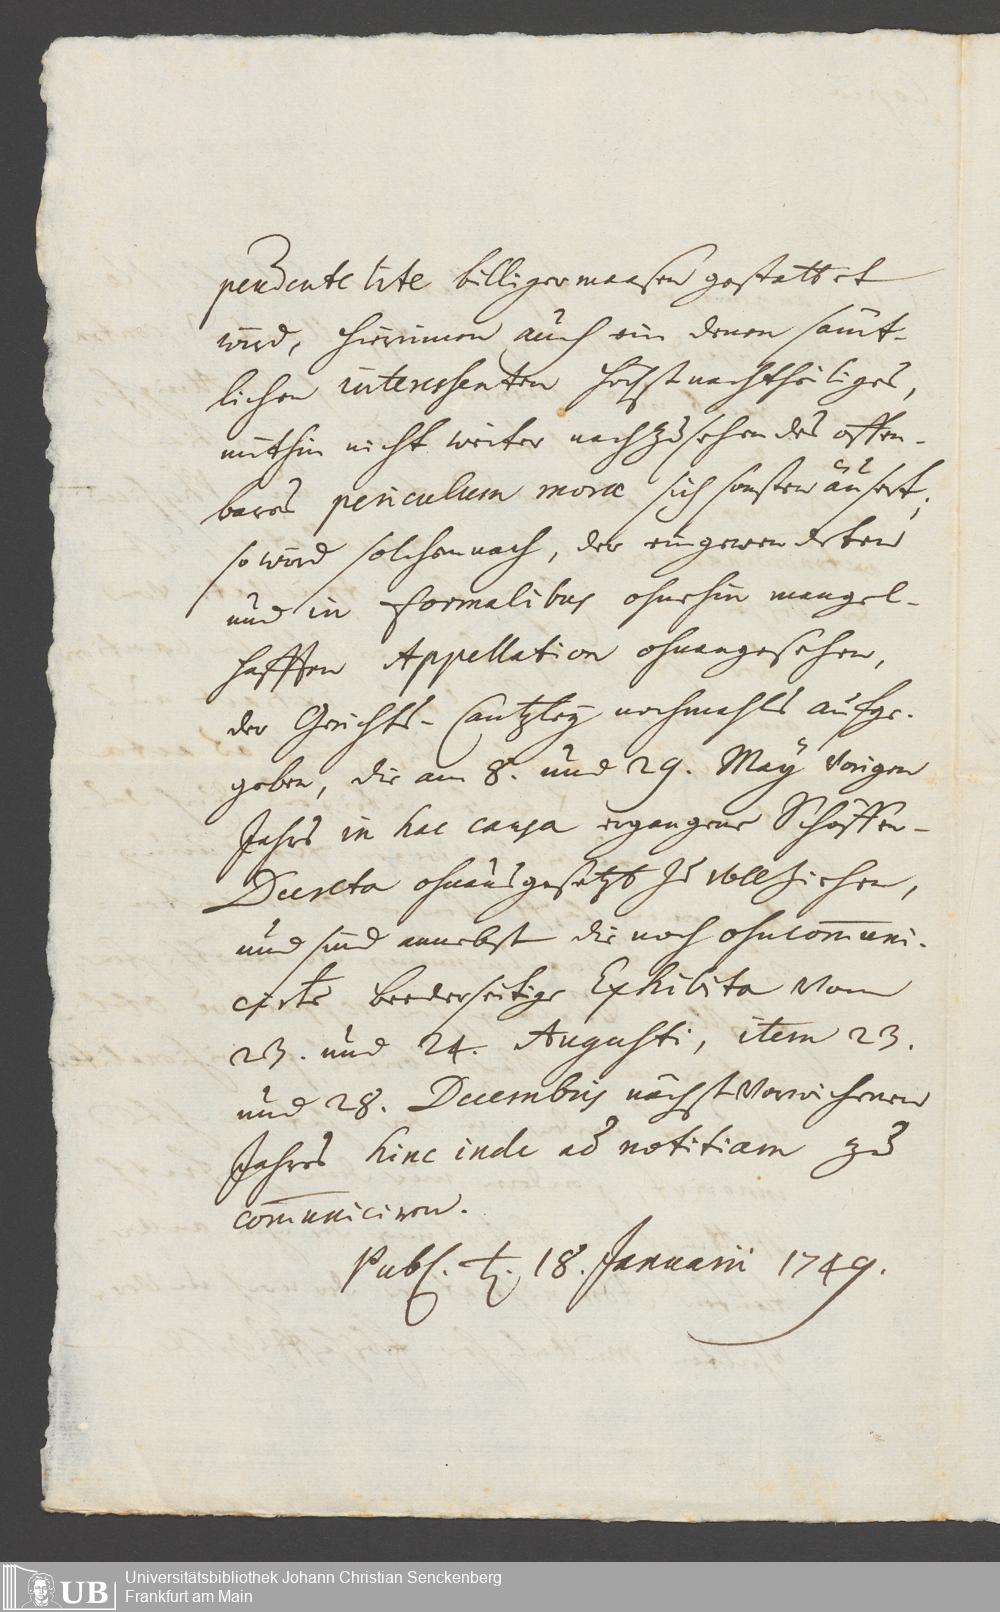 pendente lite billigermaasen gestattet
wird, hierinnen auch ein denen sämt-
lichen interessenten höchstnachtheiliges,
mithin nicht weiter nachzusehendes offen-
bares periculum moræ sich sonsten äusert,
so wird solchemnach, der eingewendeten
und in formalibus ohnehin mangel-
hafften Appellation ohnangesehen,
der Gerichts-Cantzley nochmahls aufge-
geben, die am 8. und 29. May vorigen
Jahrs in hac causa ergangene Schöffen-
Decreta ohnausgesetzt zu vollziehen,
und sind annebst die noch ohncom̅uni-
cirte beederseitige Exhibita vom
23. und 24. Augusti, item 23.
und 28. Decembris nächstverwichenen
Jahres hinc inde ad notitiam zu
com̅uniciren.
Publ. d. 18. Januarii 1749.
UB
Universitätsbibliothek Johann Christian Senckenberg
Frankfurt am Main